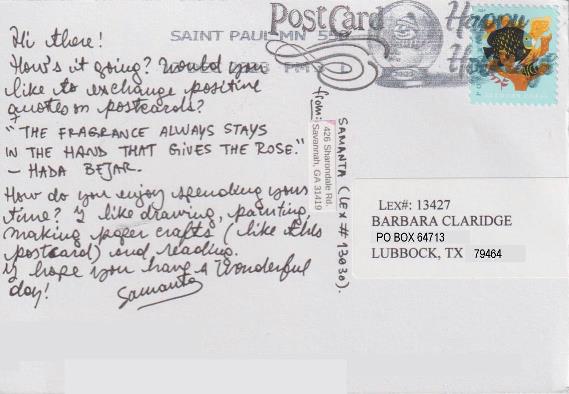 Hi there!
How's it going? Would you
like to exchange positive
quotes on postcards?
"THE FRAGRANCE ALWAYS STAYS
IN THE HAND THAT GIVES THE ROSE."
- HADA BEJAR.
How do you enjoy spending your
time? I like drawing, painting,
making paper crafts (like this
postcard) and reading.
I hope you have a wonderful
day!
Samanta
PostCard
SAINT PAUL MN
Happy
from:
SAMANTA (LEX # 13030).
426 Sharondale Rd.
Savannah, GA 31419
LEX#: 13427
BARBARA CLARIDGE
PO BOX 64713
LUBBOCK, TX 79464